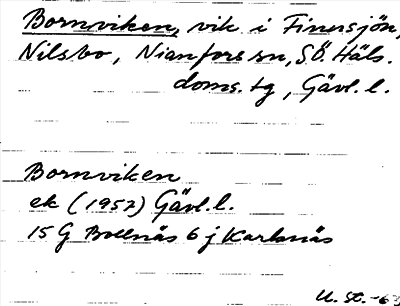 Bornviken, vik i Finnsjön,
Nilsbo, Nianfors sn, S.Ö. Häls.
doms. tg, Gävl. l.
Bornviken
ek (1952) Gävl. l.
15 G Bollnäs 6 j Karlsnäs
U. St. -6